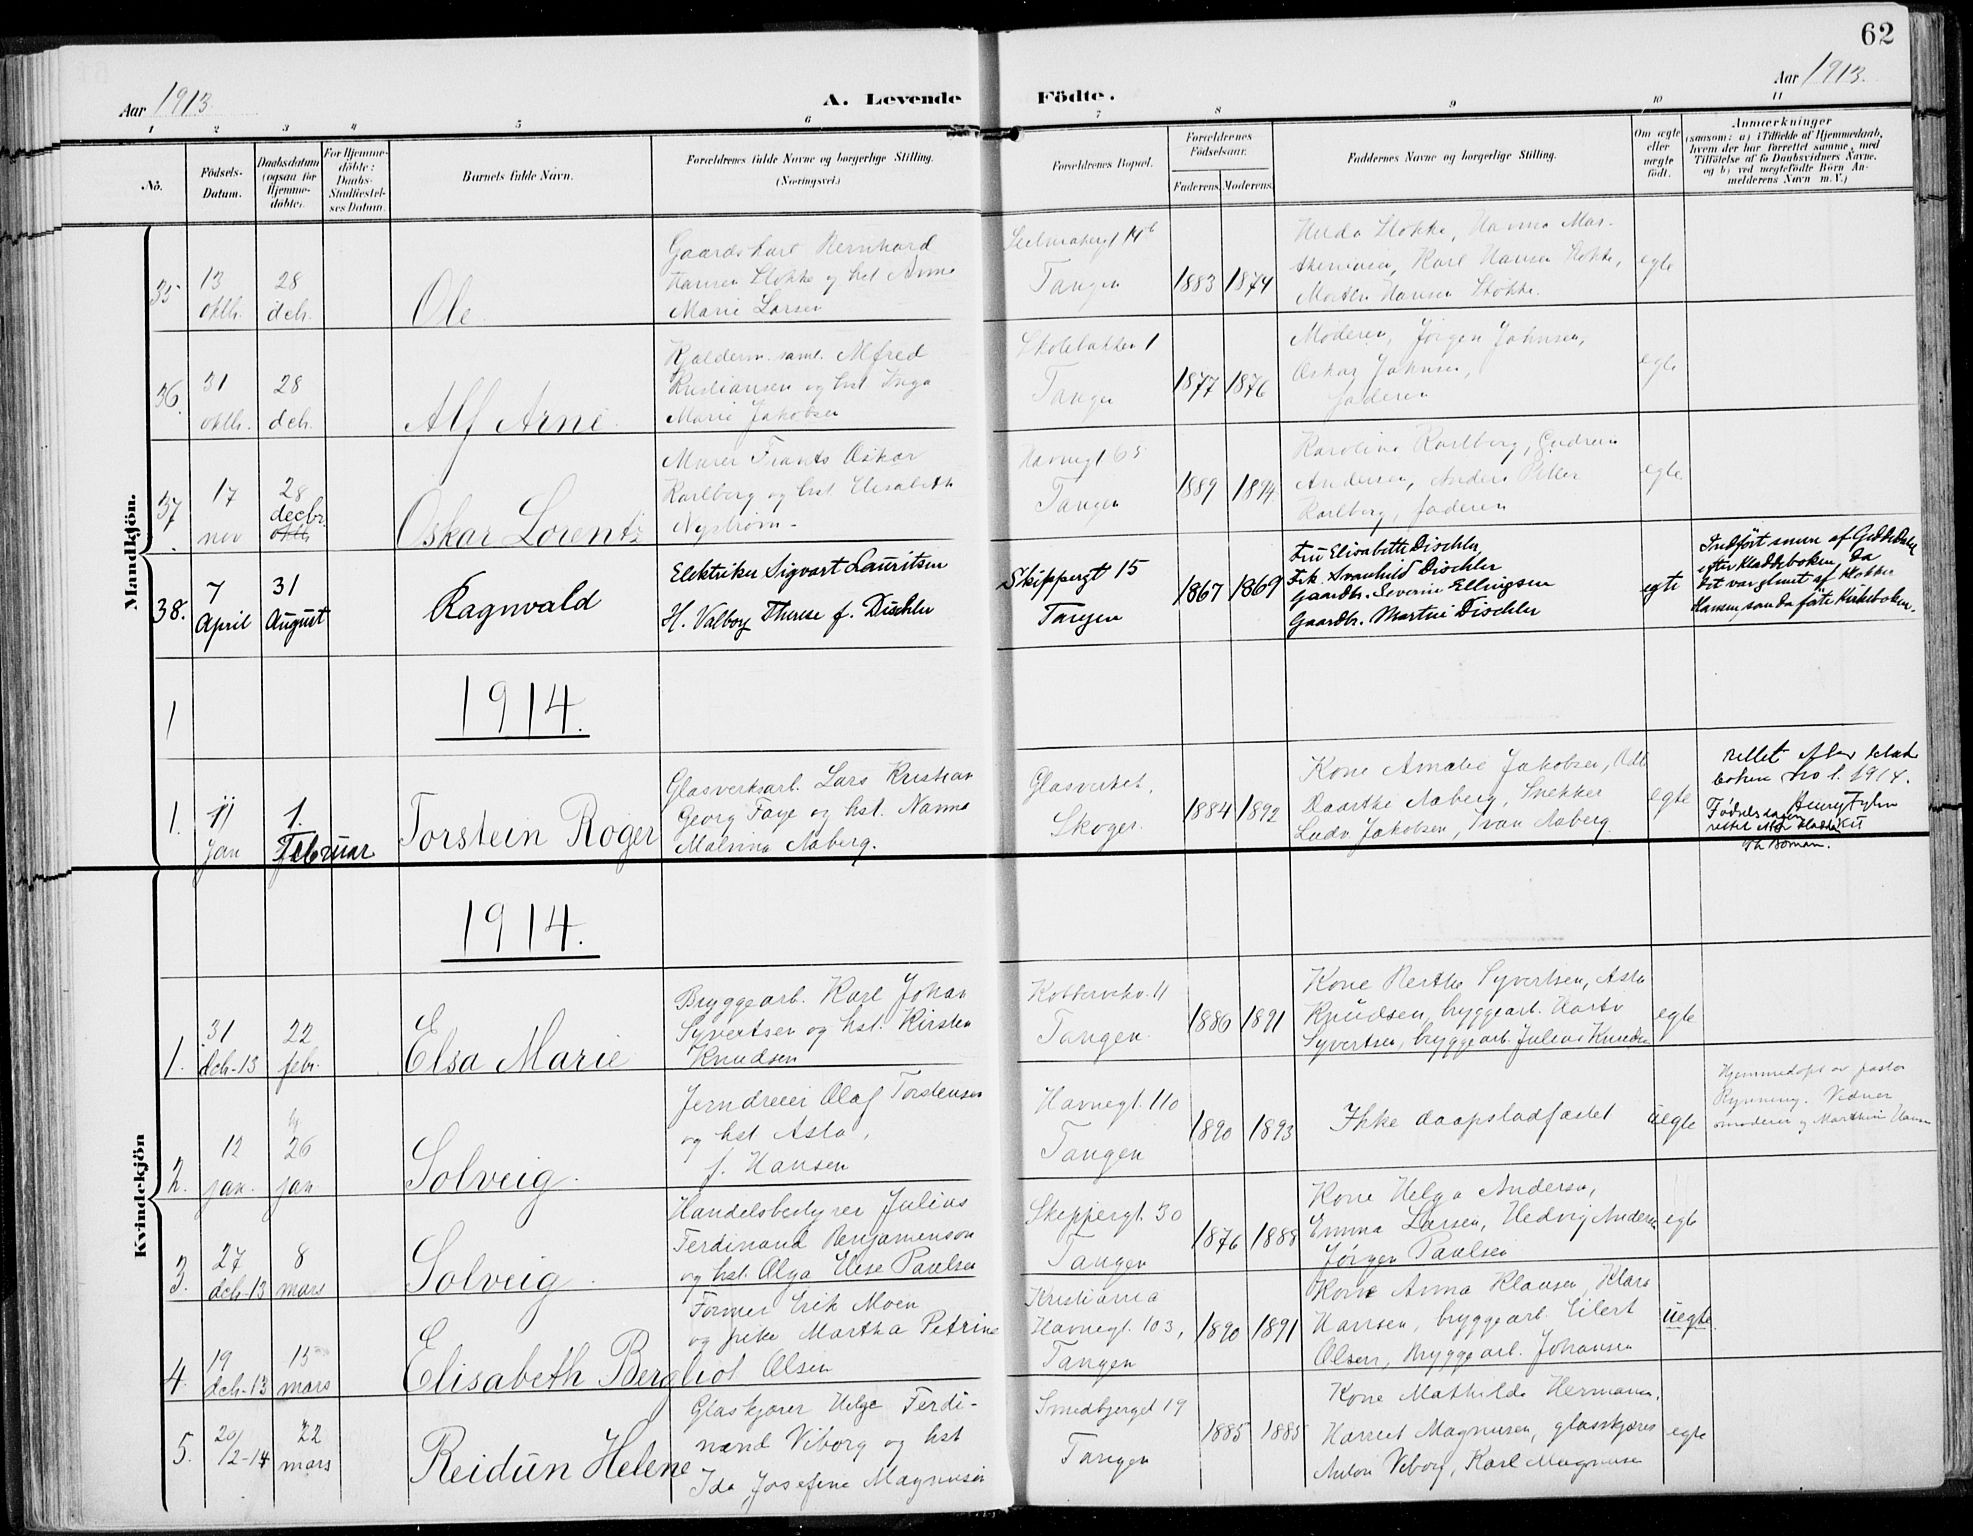 62
Aar 1913.
A. Levende Födte.
Aar 1913.
1 2 3 4 5 6 7 8 9 10 11
No.
Födsels-
Datum.
Daabsdatum
(ogsaa for
Hjemme-
döbte).
For Hjemme-
döbte:
Daabs-
Stadfæstel-
ses Datum.
Barnets fulde Navn.
Forældrenes fulde Navne og borgerlige Stilling.
(Næringsvei.)
Forældrenes Bopæl.
Forældrenes
Födselsaar.
Faderens. Moderens.
Faddernes Navne og borgerlige Stilling.
Om ægte
eller
uægte
födt.
Anmærkninger
(saasom: a) i Tilfælde af Hjemmedaab,
hvem der har forrettet samme, med
Tilföielse af to Daabsvidners Navne,
og b) ved uægtefödte Börn An-
melderens Navn m. V.)
Mandkjön.
35
13
oktb.
28
dcb.
Ole
Gaardskarl Bernhard
Hansen Stokke og hst Anne
Marie Larsen
Tangen
1883 1874
Hilda Stokke, Hanna Mar-
Karl Hansen Stokke,
Morten Hansen Stokke.
egte
36.
31
oktb.
28
dcb.
Alf Arne.
Alfred
Kristiansen og hst Inga
Marie Jakobsen
Skolebakken 1
Tangen
1877 1876
Moderen, Jörgen Johnsen,
Oskar Johnsen,
faderen
egte
37.
17
nov
28
decbr.
oktb
Oskar Lorentz
Murer Frants Oskar
Karlberg og hst Elisabeth
Nyström-
Havnegt 65
Tangen
1889 1894
Karoline Karlberg, Gudrun
Andersen, Anders Petter
Karlberg, faderen
egte
38.
7
April
31
August
Ragnvald
Elektriker Sigvart Lauritsen
H. Valborg Therese f. Dischler
Skippergt 15
Tangen
1867 1869
Fru Elisabeth Dischler,
Frk. Svanhild Dischler
Gaardbr. Severin Ellingsen
Gaardbr. Martin Dischler
egte
Indført
efter Kladdeboken, da
det var glemt af klokker
Hansen, som da førte Kirkeboken.
1
1914.
1.
11
jan
1.
Februar
Torstein Roger
Glasverksarb. Lars Kristian
Georg Faye og hst. Nanna
Malvina Aaberg.
Glasverket,
Skoger.
1884 1892
Kone Amalie Jakobsen,
Aaberg, Snekker
Ludv Jakobsen, Ivan Aaberg
egte
rettet efter kladd
boken no 1. 1914.
Fødselsdagen
rettet
Th Boman.
Kvindekjön
1914.
1.
31
dcb-13
22
febr.
Elsa Marie
Bryggearb. Karl Johan
Syvertsen og hst. Kirsten
Knudsen
11
Tangen.
1886 1891
Kone Berthe Syvertsen, Asta
Knudsen, bryggearb.
Syvertsen, bryggearb. Julius Knudsen
egte
2.
12
jan.
26
jan
Solveig.
Jerndreier Olaf Torstensen
og hst Asta,
f. Hansen
Havnegt. 110
Tangen
1890 1893
Ikke daapstadfæstet
uegte
Hjemmedøpt av pastor
Rynning. Vidner
og Marthine Hansen
3.
27
dcb-13
8
mars
Solveig.
Handelsbestyrer Julius
Ferdinand Benjamenson
og hst. Olga Elise Paulsen
Skippergt. 30
Tangen
1876 1888
Kone Helga Andersen,
Emma Larsen, Hedvig Andersen
Jörgen Paulsen
egte
4.
19
dcb-13
15
mars
Elisabeth Bergliot
Former Erik Moen
og pike Martha Petrine
Olsen
Kristiania
Havnegt. 103,
Tangen
1890 1891
Kone Anna Klausen, Klara
Hansen, bryggearb. Eilert
Olsen, bryggearb. Johansen
uegte.
5.
20/
12-14
22
mars
Reidun Helene
Glaskjører Helge Ferdi-
nand Viborg og hst
Ida Josefine Magnusen
Smedbjerget 19
Tangen
1885 1885
Kone Mathilde Hermansen,
Harriet Magnusen, glasskjører
Anton Viborg, Karl Magnusen
egte